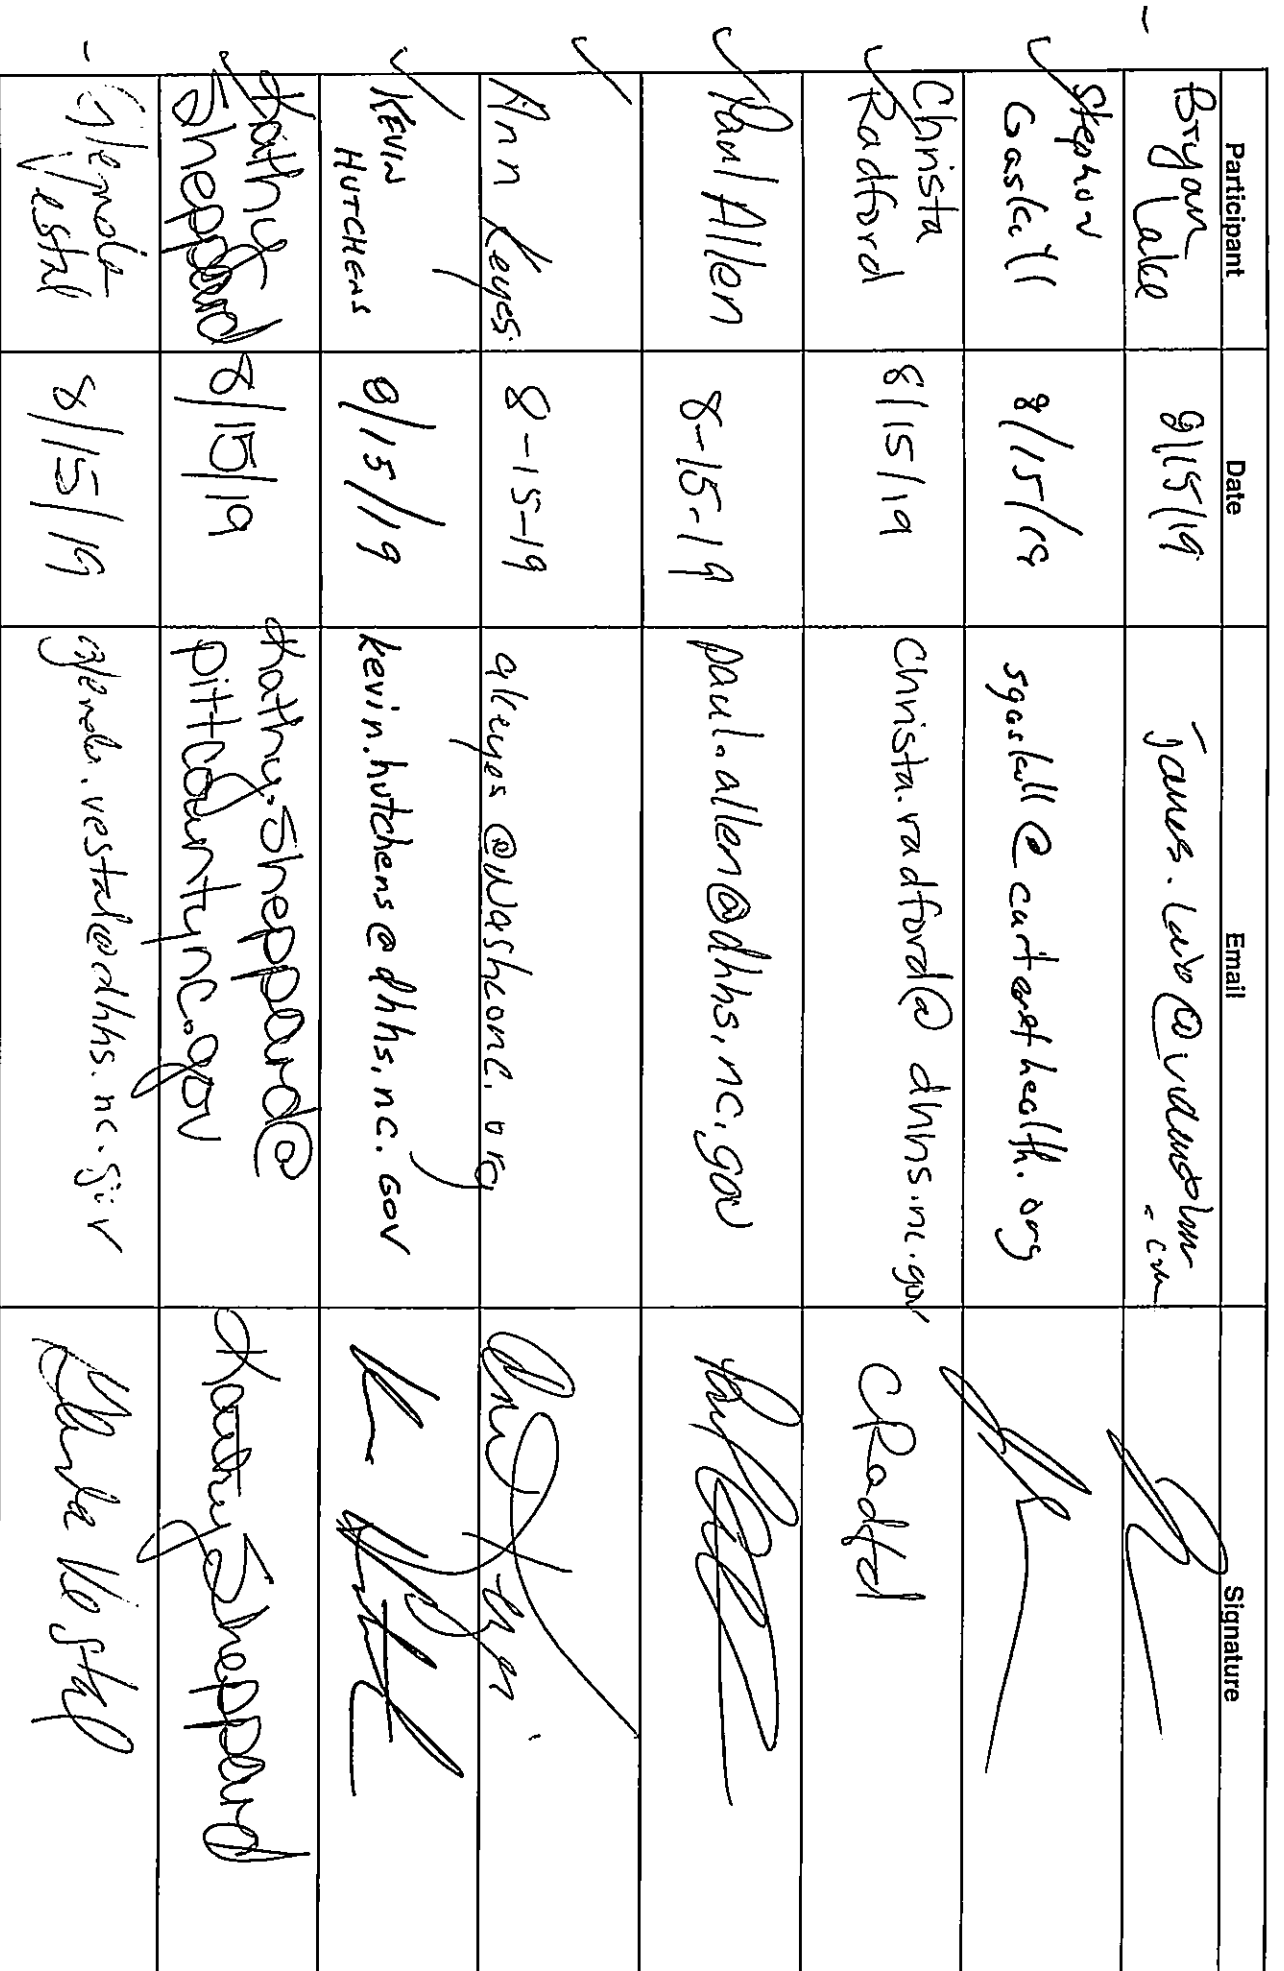 Participant Date Email Signature
Bryan Lake 8/15/19
Stephen Gaskill 8/15/19 sgaskill@carterethealth.org
Christa Radford 8/15/19 Christa.radford@dhhs.nc.gov CRadfd
Paul Allen 8-15-19 paul.allen@dhhs.nc.gov
Ann Keyes 8-15-19 akeyes@washconc.org
KEVIN HUTCHENS 8/15/19 kevin.hutchens@dhhs.nc.gov
Kathy Sheppard 8/15/19 kathy.sheppard@
pittcountync.gov Kathy Sheppard
Glenda Vestal 8/15/19 glenda.vestal@dhhs.nc.gov Glenda Vestal